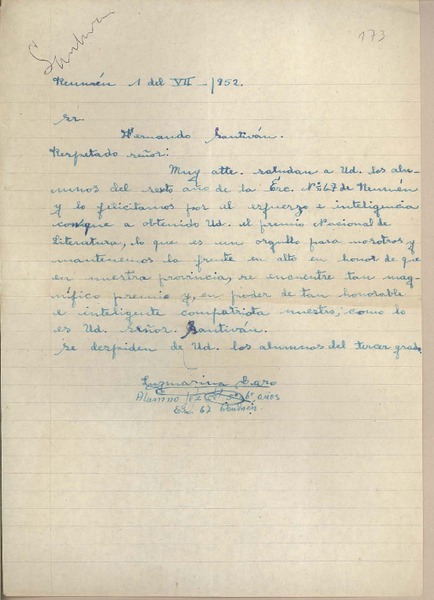 173
Reumén 1 del VII -1952.
Sr.
Hernando Santiván.
Respetado señor:
Muy atte. saludan a Ud. los alu-
mnos del sexto año de la Esc. Nº 67 de Reumén
y lo felicitamos por el esfuerzo e inteligencia
con que a obtenido Ud. el premio Nacional de
Literatura, lo que es un orgullo para nosotros y
mantenemos la frente en alto en honor de que
en nuestra provincia, se encuentre tan mag-
nífico premio y, en poder de tan honorable
e inteligente compatriota nuestro, como lo
es Ud. señor. Santiván.
Se despiden de Ud. los alumnos del tercer grado.
Luzmarina
Alumno años
Esc. 67 Reumén